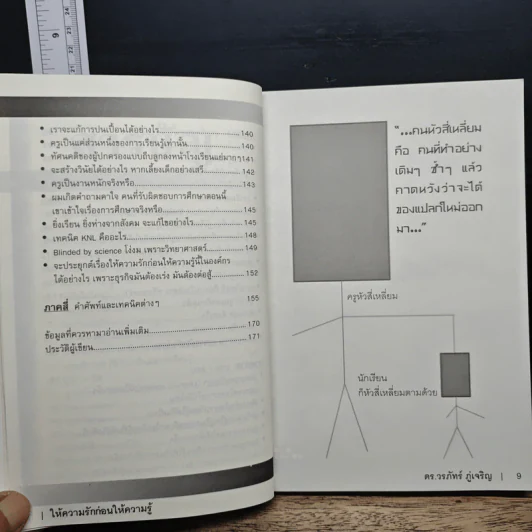 • เราจะแก้การปนเปื้อนได้อย่างไร.......................................140
• ครูเป็นแค่ส่วนหนึ่งของการเรียนรู้เท่านั้น..........................140
• ทัศนคติของผู้ปกครองแบบถีบลูกลงหน้าโรงเรียนแย่มากๆ 141
• จะสร้างวินัยได้อย่างไร หากเลี้ยงเด็กอย่างเสรี..................142
• ครูเป็นงานหนักจริงหรือ................................................143
• ผมเกิดคำถามคาใจ คนที่รับผิดชอบการศึกษาตอนนี้
เขาเข้าใจเรื่องการศึกษาจริงหรือ....................................145
• ยิ่งเรียน ยิ่งห่างจากสังคม จะแก้ไขอย่างไร.....................145
• เทคนิค KNL คืออะไร...................................................148
• Blinded by science โง่งม เพราะวิทยาศาสตร์..................149
• จะประยุกต์เรื่องให้ความรักก่อนให้ความรู้นี้ในองค์กร
ได้อย่างไร เพราะธุรกิจมันต้องเร่ง มันต้องต่อสู้................152
ภาคสี่ คำศัพท์และเทคนิคต่างๆ 155
ข้อมูลที่ควรหามาอ่านเพิ่มเติม...........................................170
ประวัติผู้เขียน................................................................171
| ให้ความรักก่อนให้ความรู้
"...คนหัวสี่เหลี่ยม
คือ คนที่ทำอย่าง
เดิมๆ ซ้ำๆ แล้ว
คาดหวังว่าจะได้
ของแปลกใหม่ออก
มา..."
ครูหัวสี่เหลี่ยม
นักเรียน
ก็หัวสี่เหลี่ยมตามด้วย
ดร.วรภัทร์ ภู่เจริญ | 9